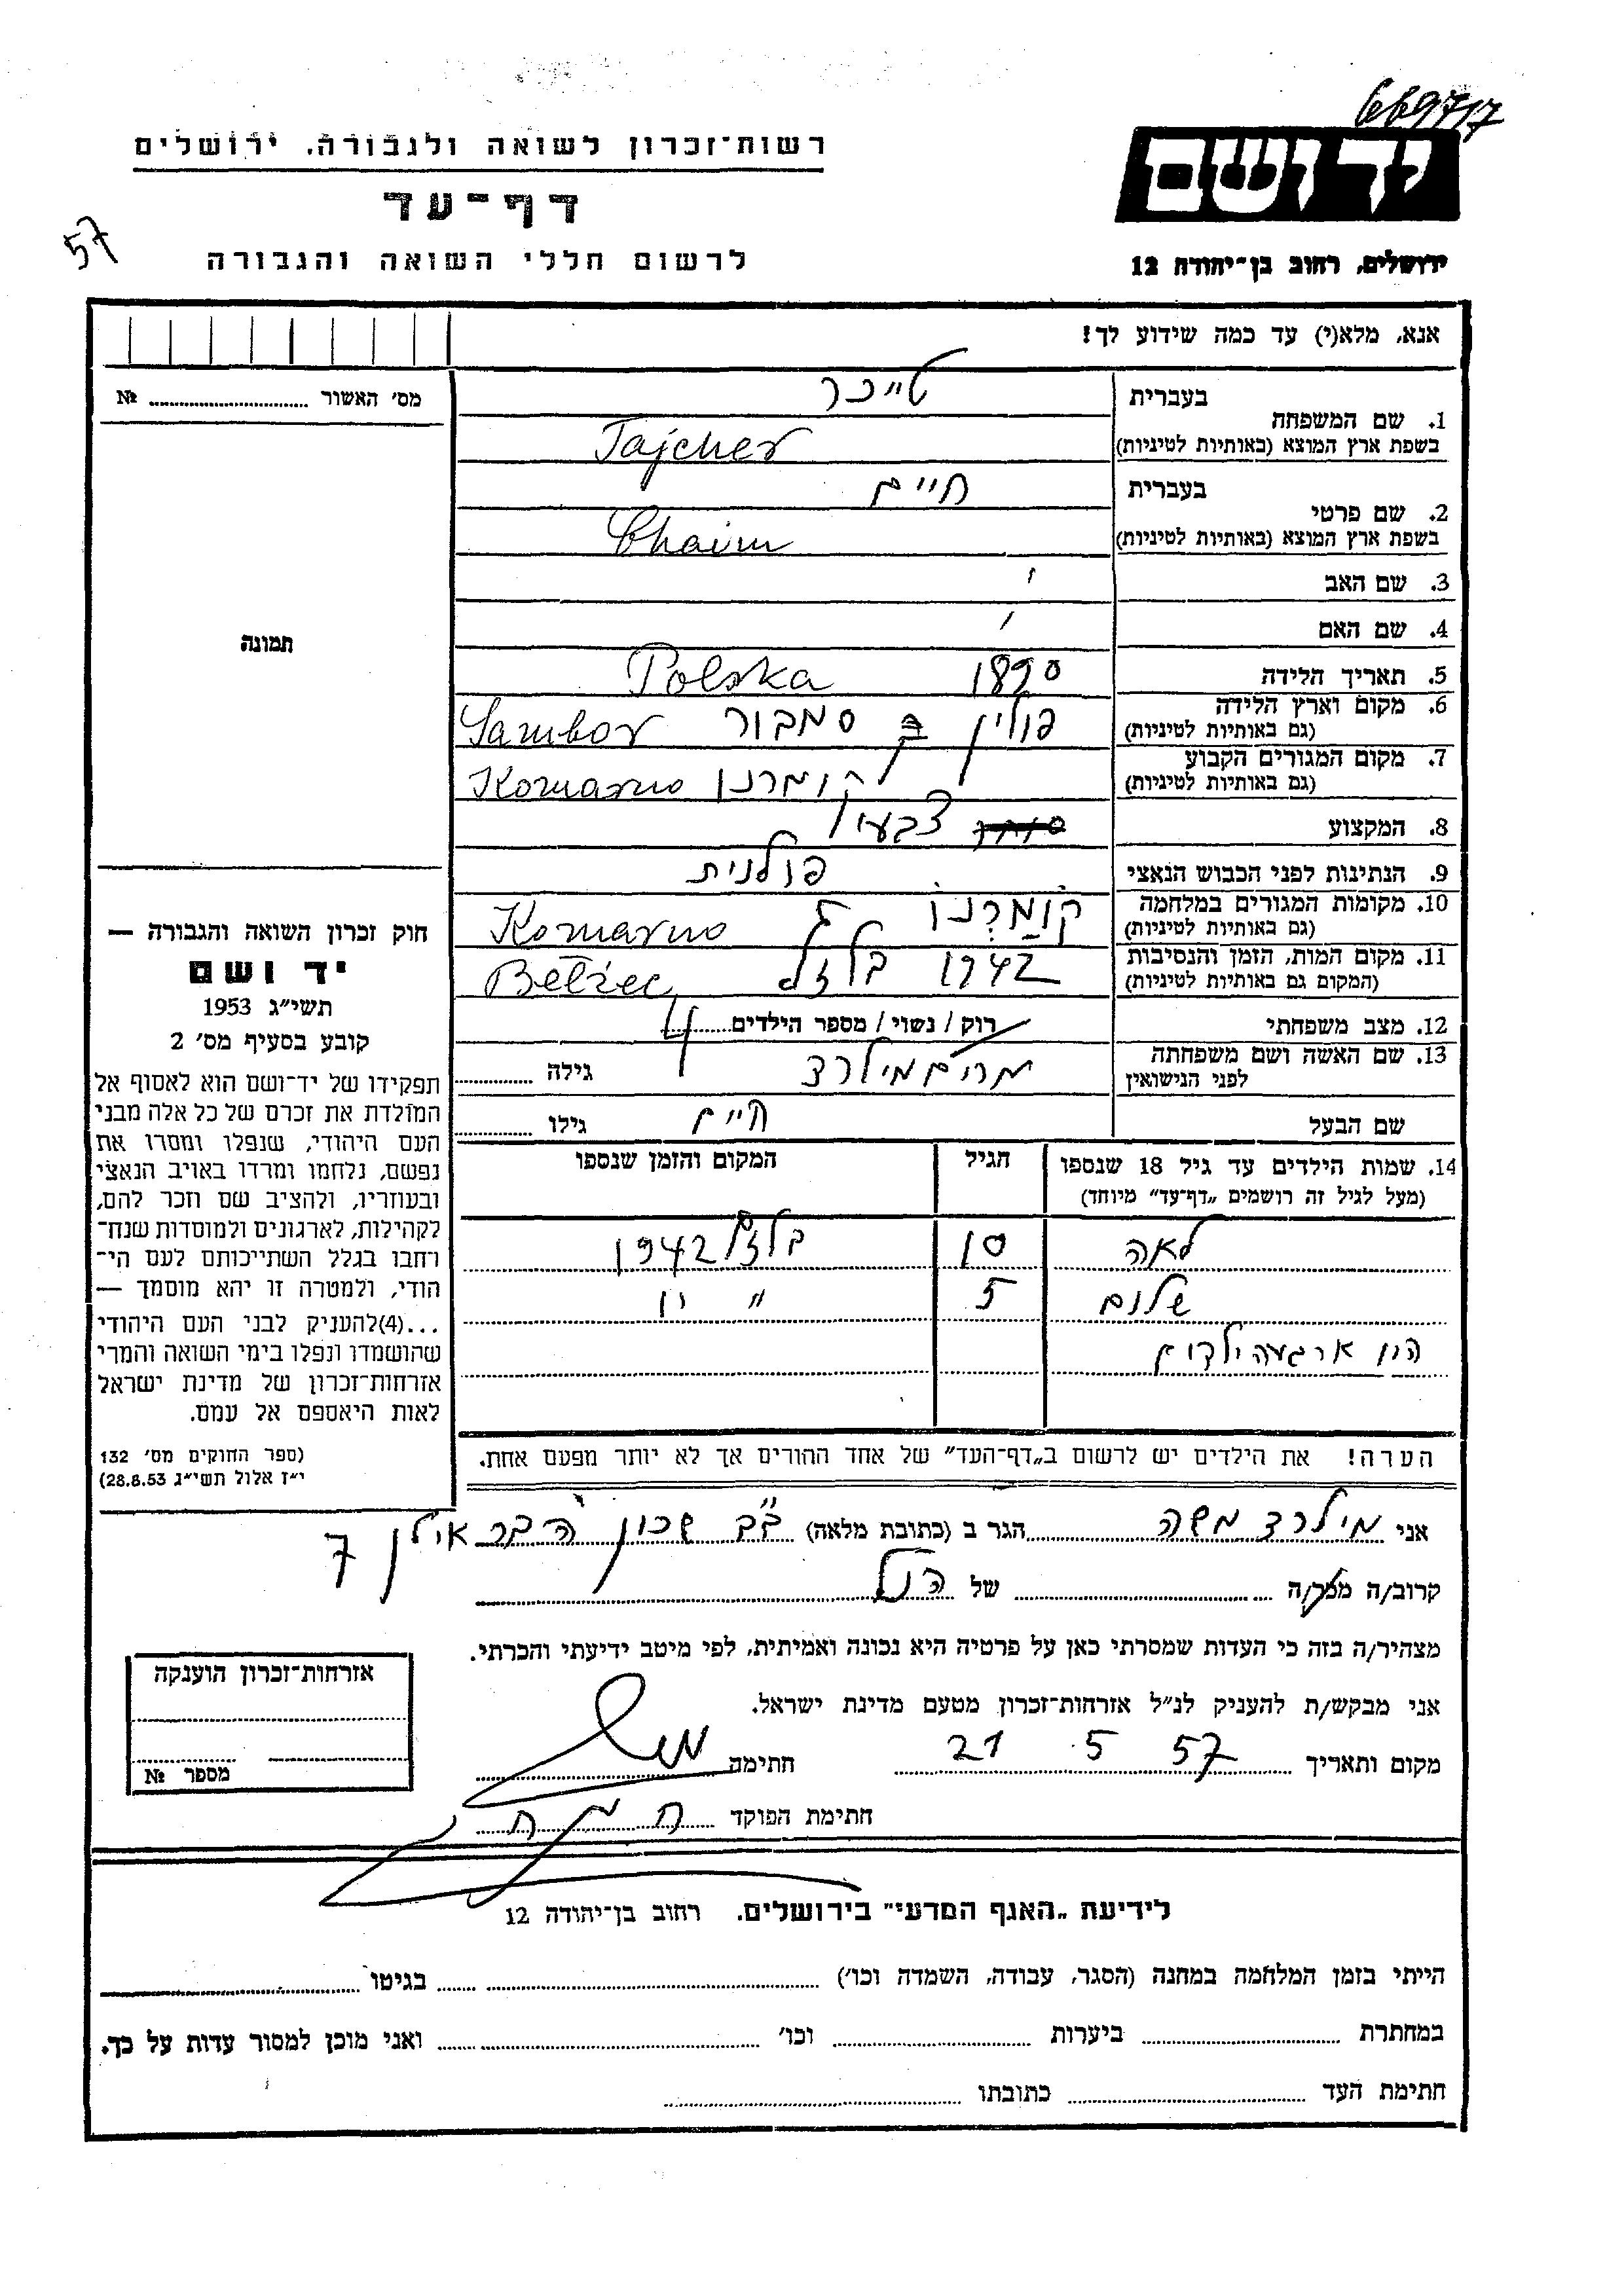 669717
רשות־זכרון לשואה ולגבורה. ירושלים
יד ושם
דף־עד
57
לרשום חללי השואה והגבורה
ירושלים, רחוב בן־יהודה 12
אנא, מלא(י) עד כמה שידוע לך!
מס׳ האשור № 
בעברית טייכר
1. שם המשפחה
בשפת ארץ המוצא (באותיות לטיניות) Tajcher
בעברית חיים
2. שם פרטי
בשפת ארץ המוצא (באותיות לטיניות) Chaim
3. שם האב
4. שם האם
תמונה
5. תאריך הלידה 1890 Polska
6. מקום וארץ הלידה פולין סמבור Sambor
(גם באותיות לטיניות)
7. מקום המגורים הקבוע קומרנו Komarno
(גם באותיות לטיניות)
8. המקצוע צבעי
9. הנתינות לפני הכבוש הנאצי פולנית
10. מקומות המגורים במלחמה קומרנו Komarno
(גם באותיות לטיניות)
11. מקום המות, הזמן והנסיבות 1942 Bełżec
(המקום גם באותיות לטיניות)
12. מצב משפחתי רוק / נשוי / מספר הילדים 4
13. שם האשה ושם משפחתה מרים מילרד גילה
לפני הנישואין
שם הבעל חיים גילו
14. שמות הילדים עד גיל 18 שנספו הגיל המקום והזמן שנספו
(מעל לגיל זה רושמים „דף־עד” מיוחד)
לאה 10 1942
שלום 5 " "
היו ארבעה ילדים
חוק זכרון השואה והגבורה —
יד ושם
תשי״ג 1953
קובע בסעיף מס׳ 2
תפקידו של יד־ושם הוא לאסוף אל
המולדת את זכרם של כל אלה מבני
העם היהודי, שנפלו ומסרו את
נפשם, נלחמו ומרדו באויב הנאצי
ובעוזריו, ולהציב שם וזכר להם,
לקהילות, לארגונים ולמוסדות שנח־
רחבו בגלל השתייכותם לעם הי־
הודי, ולמטרה זו יהא מוסמך —
...(4)להעניק לבני העם היהודי
שהושמדו ונפלו בימי השואה והמרי
אזרחות־זכרון של מדינת ישראל
לאות היאספם אל עמם.
(ספר החוקים מס׳ 132
י״ז אלול תשי״ג 28.8.53)
הערה! את הילדים יש לרשום ב„דף־העד” של אחד ההורים אך לא יותר מפעם אחת.
אני מילרד משה הגר ב (כתובת מלאה) ב״ב שכון הבר אילן 7
קרוב/ה מכר/ה של הנ״ל
מצהיר/ה בזה כי העדות שמסרתי כאן על פרטיה היא נכונה ואמיתית, לפי מיטב ידיעתי והכרתי.
אני מבקש/ת להעניק לנ״ל אזרחות־זכרון מטעם מדינת ישראל.
מקום ותאריך 21 5 57 חתימה
חתימת הפוקד
אזרחות־זכרון הוענקה
מספר №
לידיעת „האגף המדעי” בירושלים. רחוב בן־יהודה 12
הייתי בזמן המלחמה במחנה (הסגר, עבודה, השמדה וכו׳) בגיטו
במחתרת ביערות וכו׳ ואני מוכן למסור עדות על כך.
חתימת העד כתובתו